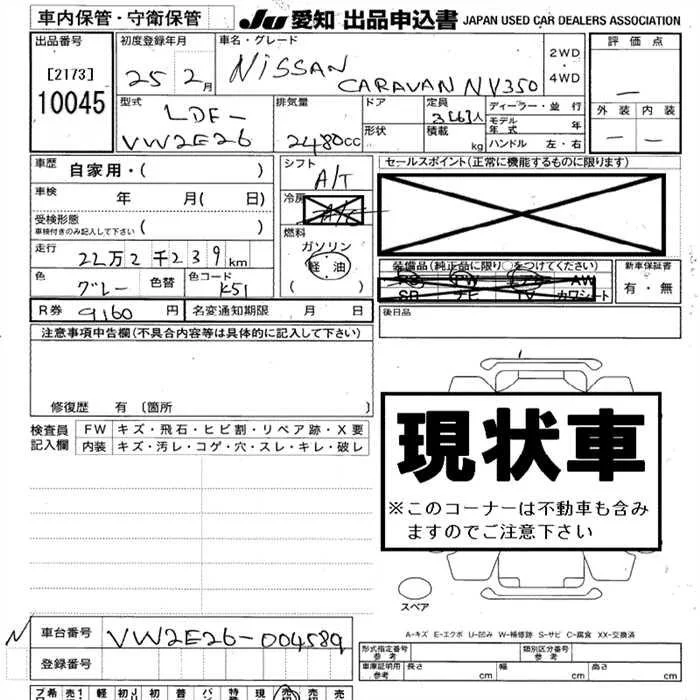 車内保管・守衛保管
Ju 愛知 出品申込書 JAPAN USED CAR DEALERS ASSOCIATION
出品番号
[2173]
10045
初度登録年月
25 2月
車名・グレード
NISSAN
CARAVAN NV350
2WD
4WD
評価点
—
外装 内装
— —
型式
LDF-
VW2E26
排気量
2480cc
ドア
形状
定員
3[6]人
積載
kg
ディーラー・並行
モデル年式 年
ハンドル 左・右
車歴 自家用・( )
車検 年 月( 日)
受検形態
車検付きのみ記入して下さい ( )
走行 22万2千239km
色 グレー 色替 色コード K51
R券 9160 円 名変通知期限 月 日
シフト
A/T
冷房
A/C
燃料
ガソリン
軽油
( )
セールスポイント(正常に機能するものに限ります)
装備品(純正品に限り○をつけてください)
PS PW AW
SR ナビ TV カワシート
新車保証書
有・無
後日品
注意事項申告欄(不具合内容等は具体的に記入して下さい)
修復歴 有 〔箇所 〕
検査員記入欄
FW キズ・飛石・ヒビ割・リペア跡・X要
内装 キズ・汚レ・コゲ・穴・スレ・キレ・破レ
現状車
※このコーナーは不動車も含み
ますのでご注意下さい
スペア
N 車台番号 VW2E26-004589
登録番号
A-キズ E-エクボ U-凹み W-補修跡 S-サビ C-腐食 XX-交換済
形式指定番号
参考
類別区分番号
参考
車庫証明用
参考
長さ cm 幅 cm 高さ cm